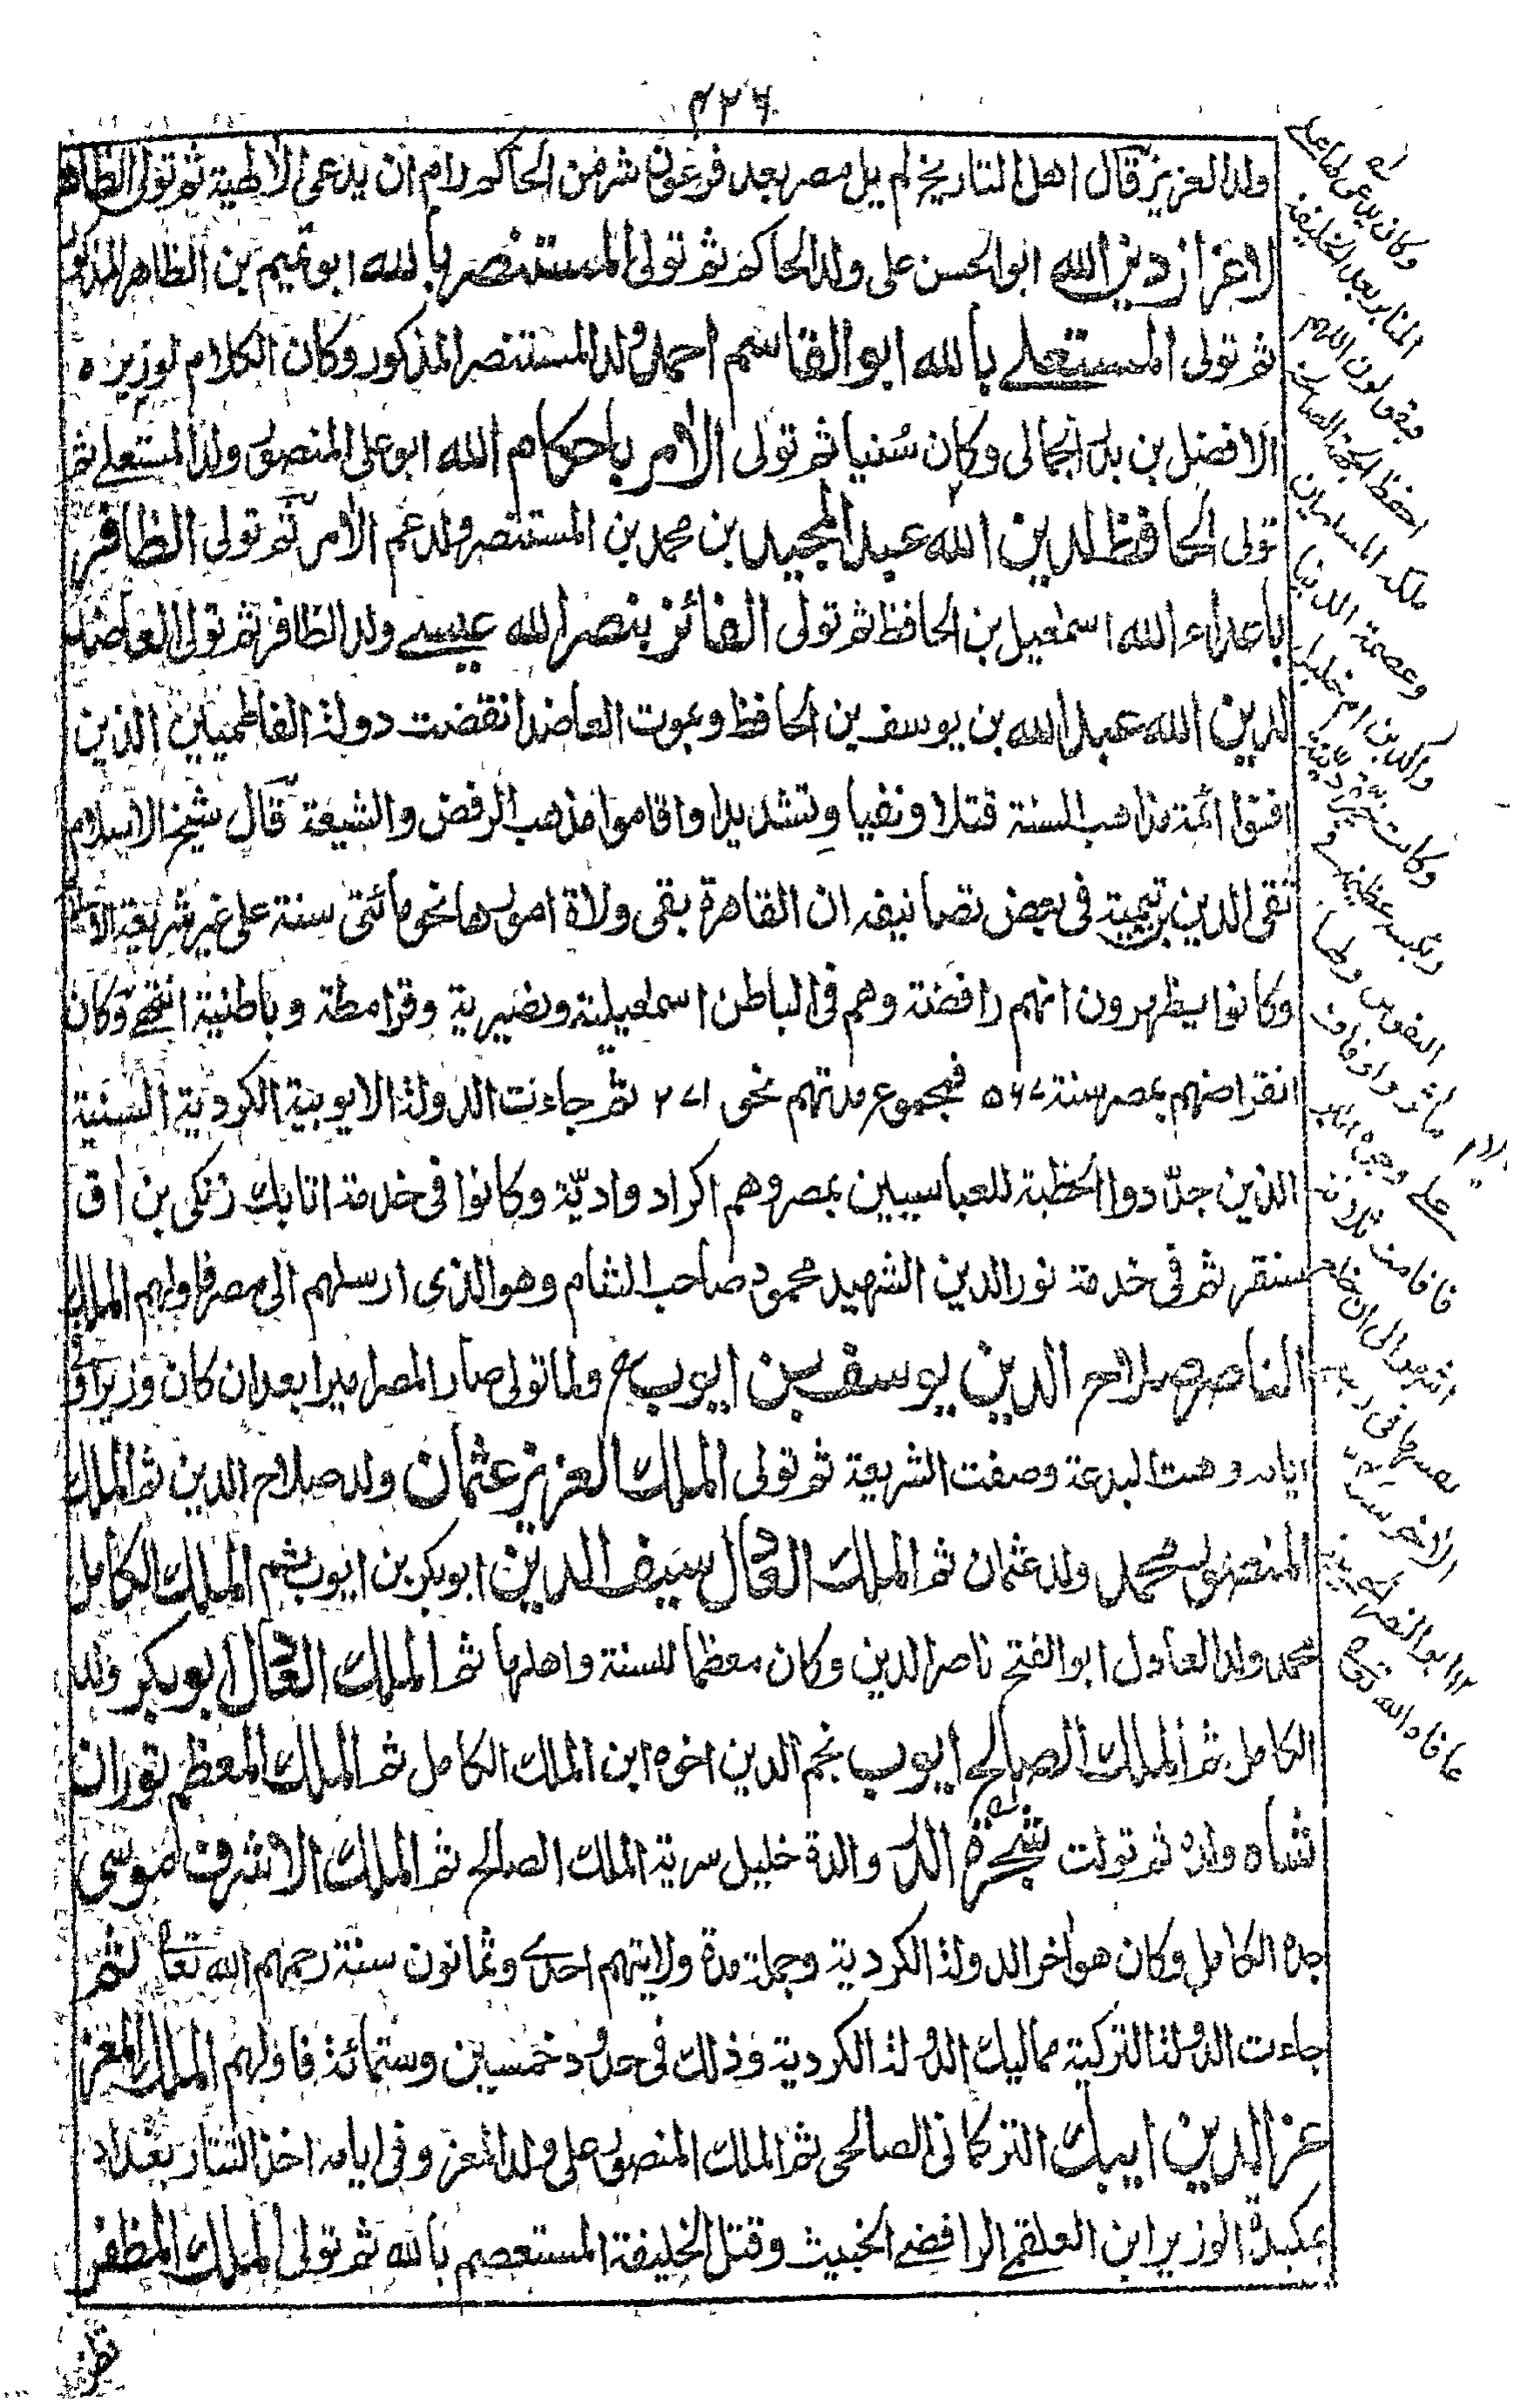 ٤٢٦
ولد العزيز قال اهل التاريخ لم يل مصر بعد فرعون شر من الحاكم رام ان يدعى الالهية ثم تولى الظاهر
لاعزاز دين الله ابو الحسن على ولد الحاكم ثم تولى المستنصر بالله ابو تميم بن الظاهر المذكور
ثم تولى المستعلے بالله ابو القاسم احمد ولد المستنصر المذكور وكان الكلام لوزيره
الافضل بن بدر الجمالى وكان سُنيا ثم تولى الامر باحكام الله ابو على المنصور ولد المستعلے ثم
تولى الحافظ لدين الله عبد المجيد بن محمد بن المستنصر ولد عم الامر ثم تولى الظافر
باعداء الله اسمعيل بن الحافظ ثم تولى الفائز بنصر الله عيسے ولد الظافر ثم تولى العاضد
لدين الله عبد الله بن يوسف بن الحافظ وبموت العاضد انقضت دولة الفاطميين الذين
افنوا ائمة مذاهب السنة قتلا ونفيا وتشديدا واقاموا مذهب الرفض والشيعة قال شيخ الاسلام
تقى الدين بن تيمية فى بعض تصانيفه ان القاهرة بقى ولاة امورها نحو مائتى سنة على غير شريعة الاسلام
وكانوا يظهرون انهم رافضة وهم فى الباطن اسمعيلية ونصيرية وقرامطة وباطنية انتهے وكان
انقراضهم بمصر سنة ٥٦٧ فمجموع مدتهم نحو ٢٧١ ثم جاءت الدولة الايوبية الكردية السنية
الذين جدّدوا الخطبة للعباسيين بمصر وهم اكراد واديّة وكانوا فى خدمة اتابك زنكى بن اق
سنقر ثم فى خدمة نور الدين الشهيد محمود صاحب الشام وهو الذى ارسلهم الى مصر فاولهم الملك
الناصر صلاح الدين يوسف بن ايوب ع ولما تولى صار المصر ميرا بعد ان كان وزيرا وفى
ايامه وهت البدعة وصفت الشريعة ثم تولى الملك العزيز عثمان ولد صلاح الدين ثم الملك
المنصور محمد ولد عثمان ثم الملك العادل سيف الدين ابو بكر بن ايوب ثم الملك الكامل
محمد ولد العادل ابو الفتح ناصر الدين وكان معظما للسنة واهلها ثم الملك العادل ابو بكر ولد
الكامل ثم الملك الصالح ايوب نجم الدين اخوه ابن الملك الكامل ثم الملك المعظم توران
شاه ولده ثم تولت شجرة الدر والدة خليل سرية الملك الصالح ثم الملك الاشرف موسى
جده الكامل وكان هو اخر الدولة الكردية وجملة مدة ولايتهم احدے وثمانون سنة رحمهم الله تعا ثم
جاءت الدولة التركية مماليك الدولة الكردية وذلك فى حدود خمسين وستمائة فاولهم الملك المعز
عز الدين ايبك التركمانى الصالحى ثم الملك المنصور على ولد المعز وفى ايامه اخذ التتار بغداد
بمكيدة الوزير ابن العلقمے الرافضے الخبيث وقتل الخليفة المستعصم بالله ثم تولى الملك المظفر
قطز
له
وكان يدعى لها على
المنابر بعد الخليفة
ويقولون اللهم
احفظ الجهة الصالحة
ملكة المسلمين
وعصمة الدنيا
والدين ام خليل
وكانت خيرة دينة